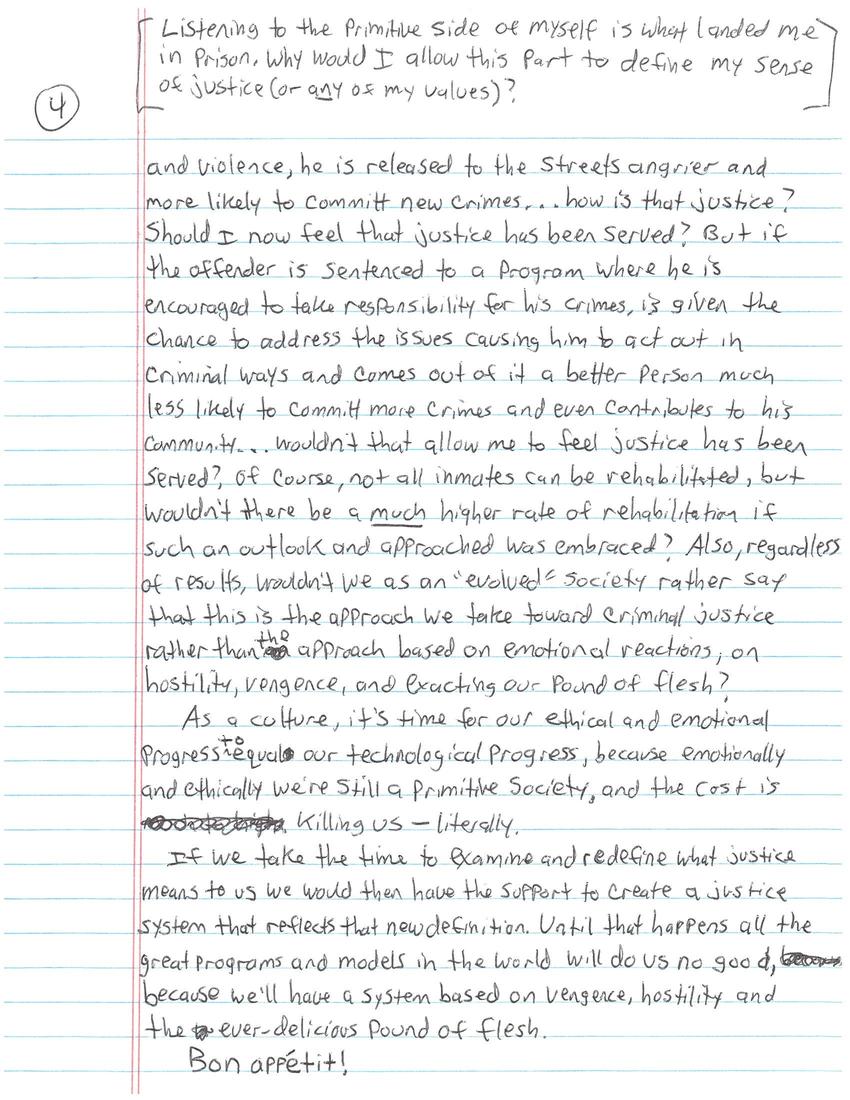 Listening to the primitive side of myself is what landed me
in prison. Why would I allow this part to define my sense
of justice (or any of my values)?
4
and violence, he is released to the streets angrier and
more likely to committ new crimes... how is that justice?
Should I now feel that justice has been served? But if
the offender is sentenced to a program where he is
encouraged to take responsibility for his crimes, is given the
chance to address the issues causing him to act out in
criminal ways and comes out of it a better person much
less likely to committ more crimes and even contributes to his
community... wouldn't that allow me to feel justice has been
served? Of course, not all inmates can be rehabilitated, but
wouldn't there be a much higher rate of rehabilitation if
such an outlook and approached was embraced? Also, regardless
of results, wouldn't we as an "evolved" society rather say
that this is the approach we take toward criminal justice
rather than the approach based on emotional reactions, on
hostility, vengence, and exacting our pound of flesh?
As a culture, it's time for our ethical and emotional
progress to equal our technological progress, because emotionally
and ethically we're still a primitive society, and the cost is
killing us – literally.
If we take the time to examine and redefine what justice
means to us we would then have the support to create a justice
system that reflects that new definition. Until that happens all the
great programs and models in the world will do us no good,
because we'll have a system based on vengence, hostility and
the ever-delicious pound of flesh.
Bon appétit!